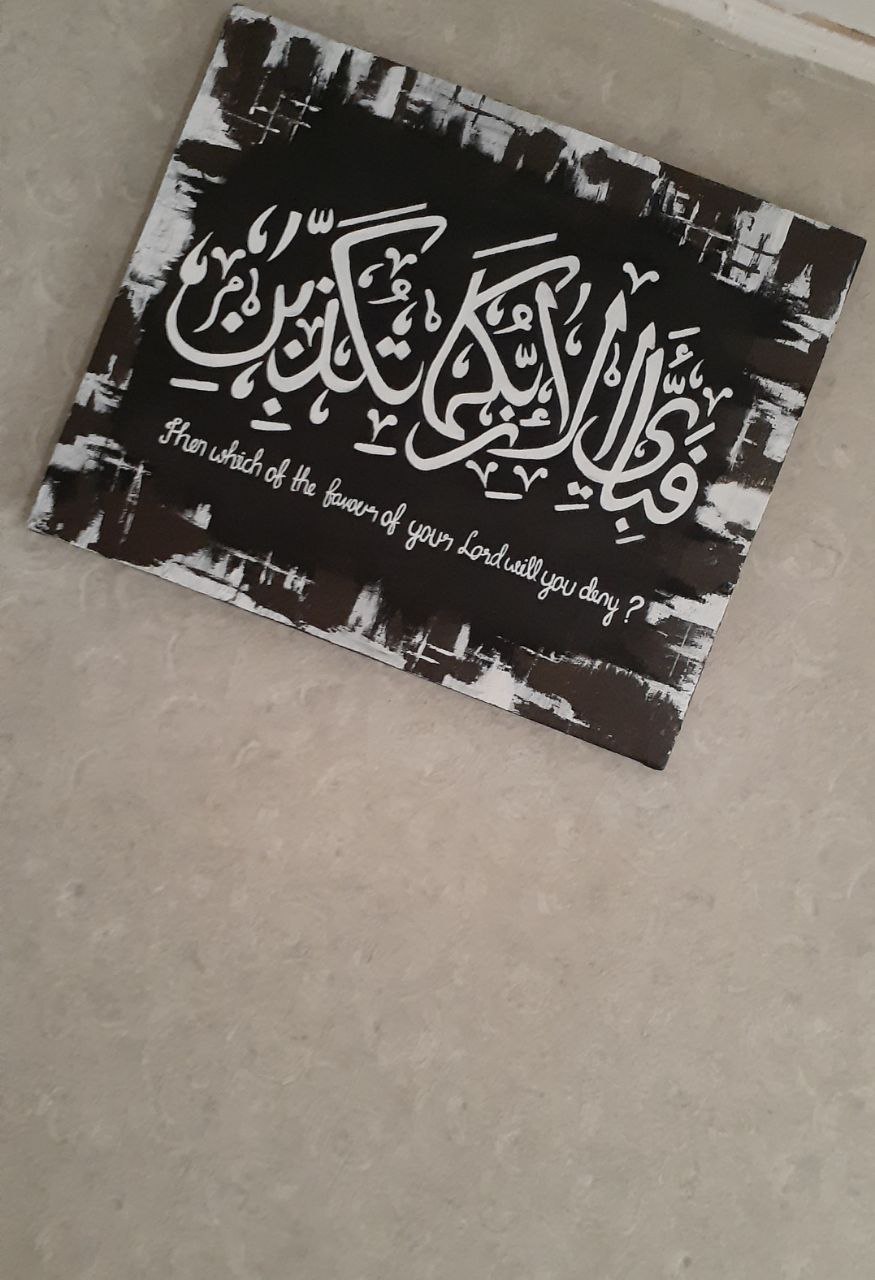 فَبِأَيِّ آلَاءِ رَبِّكُمَا تُكَذِّبَانِ
Then which of the favour of your Lord will you deny ?